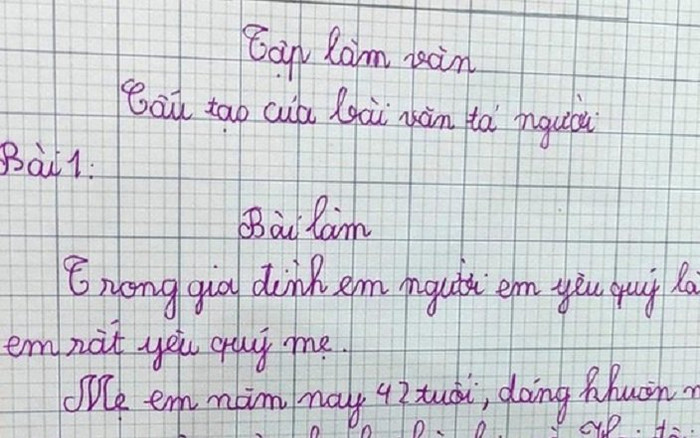 Tập làm văn
Cấu tạo của bài văn tả người
Bài 1:
Bài làm
Trong gia đình em người em yêu quý là
em rất yêu quý mẹ.
Mẹ em năm nay 42 tuổi, dáng khuôn